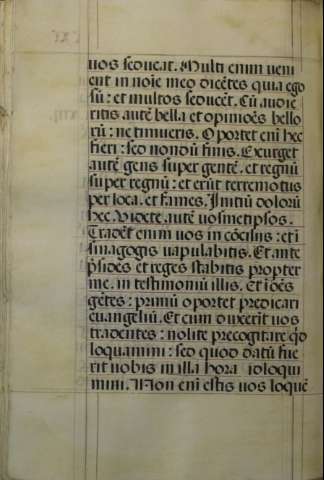 uos seducat. Multi enim ueni
ent in noīe meo dicētes quia ego
sū: et multos seducēt. Cū audie
ritis autē bella et opiniōēs bello
rū: ne timueris. Oportet enī hec
fieri: sed nondū finis. Exurget
autē gens super gentē. et regnū
super regnū: et erūt terremotus
per loca. et fames. Initiū dolorū
hec. Videte autē uosmetipsos.
Tradēt enim uos in cōcilijs: et ī
sinagogis uapulabitis. Et ante
p̄sides et reges stabitis propter
me. in testimoniū illis. Et ī oēs
gētes: primū oportet predicari
euangeliū. Et cum duxerīt uos
tradentes: nolite precogitare qd̄
loquamini: sed quod datū fue
rit uobis in illa hora id loqui
mini. Non enī estis uos loquē